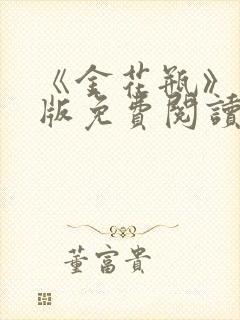 《金花瓶》
版免費閱讀
董富貴